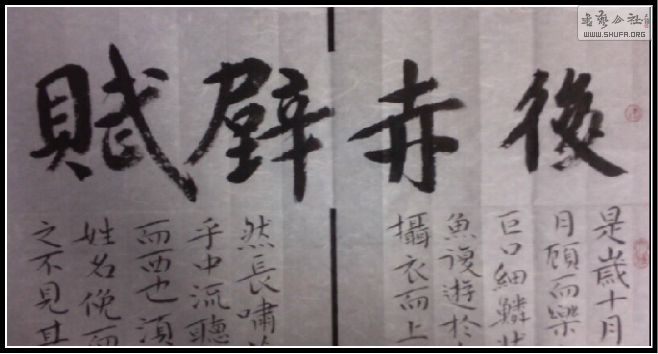 後赤壁賦
是歲十月
月顧而樂
巨口細鱗狀
魚復遊於
攝衣而上
然長嘯
乎中流聽
而西也須
姓名俛而
之不見其
WWW.SHUFA.ORG